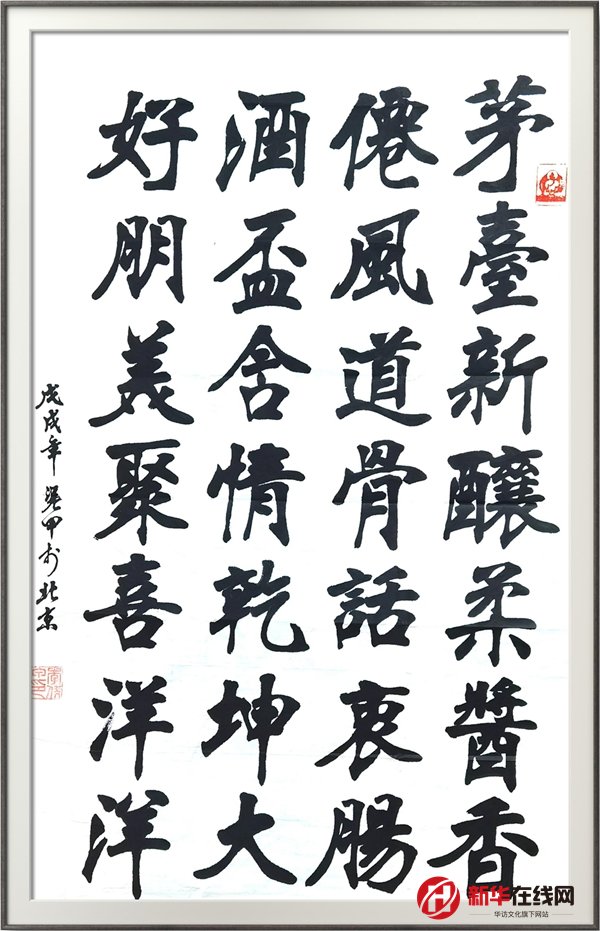 茅臺新釀柔醬香
僊風道骨話衷腸
酒盃含情乾坤大
好朋美聚喜洋洋
戊戌年 甲於北京
新华在线网
华访文化旗下网站